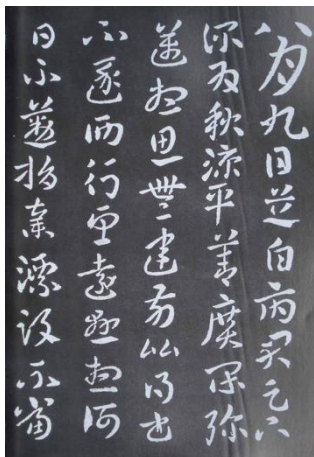 八月九日芝白府君足下
深為秋涼平善廣閑彌
邁想思無違前比得書
不遂西行望遠懸想何
日不懃捐棄漂沒不當